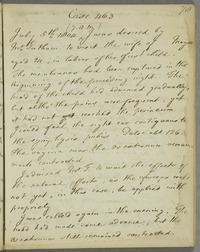 Case 463
July 5th 1802, I was desired by
Mr. to visit the wife of
aged 34, in labor of the first child.
The membranes had been ruptured in the
beginning of the preceding night. The
head of the child had advanced gradually,
but altho' the pains were frequent, yet
it had not reached the perinaeum.
I could feel the right ear contiguous to
the symphysis pubis.
The vagina near the os externum remain
much contracted.
I advised to wait the effects of
the natural efforts, as the forceps could
not yet, in this case, be applied with
propriety.
I was called again in the evening. The
head had made some advance, but the
os externum still remained contracted.